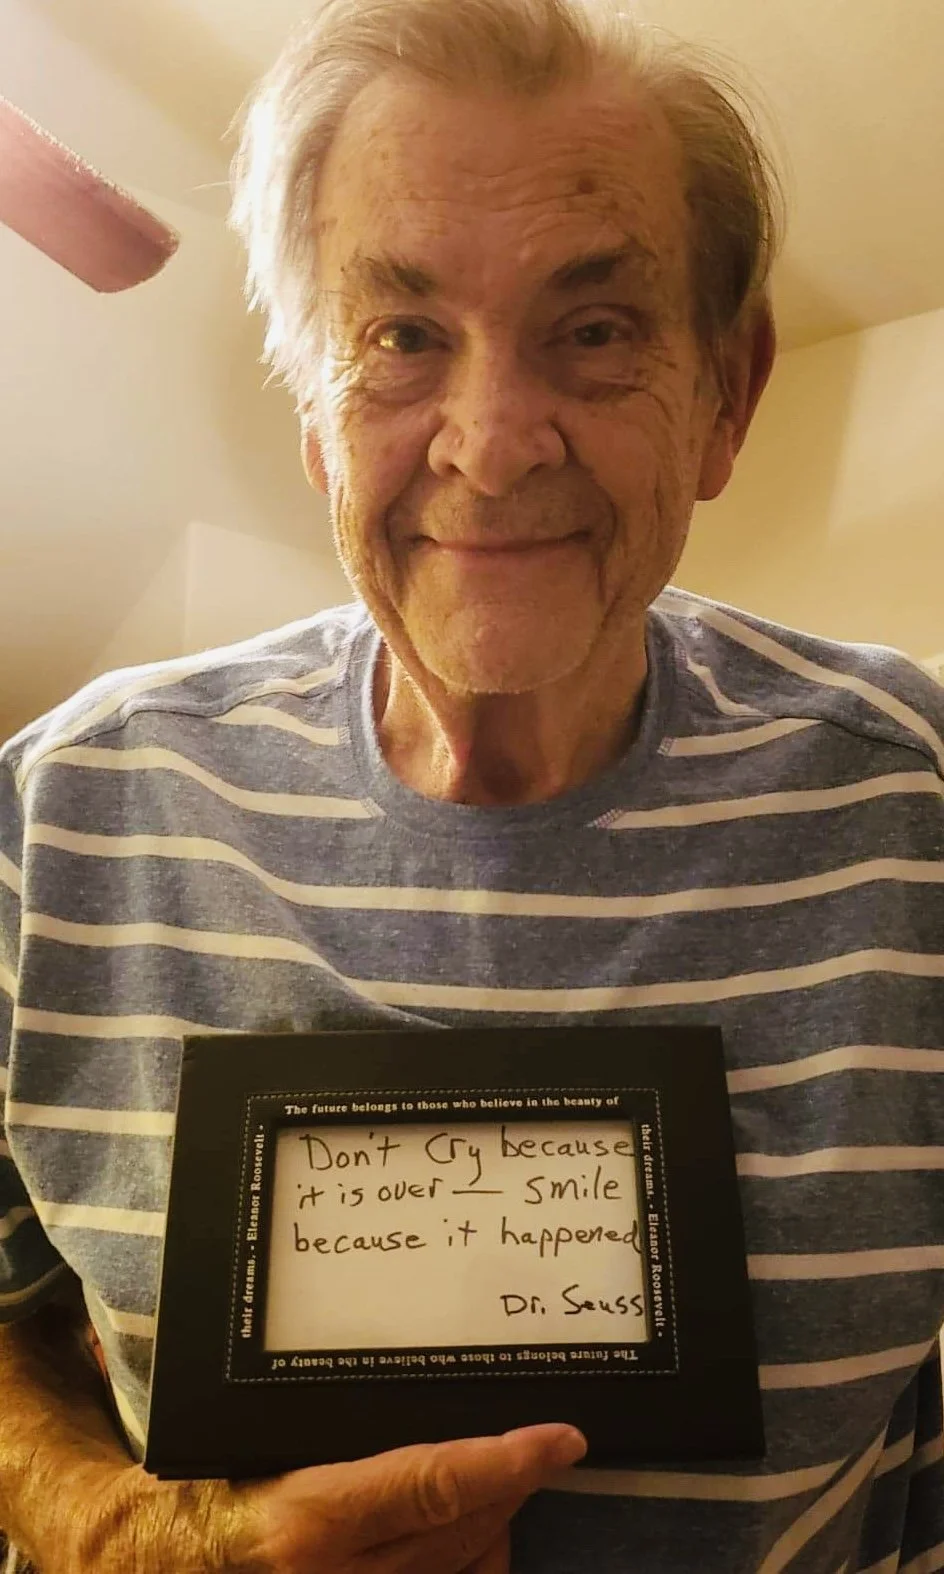 The future belongs to those who believe in the beauty of
their dreams. - Eleanor Roosevelt -
Don't Cry because
it is over — smile
because it happened
Dr. Seuss
The future belongs to those who believe in the beauty of
their dreams. - Eleanor Roosevelt -